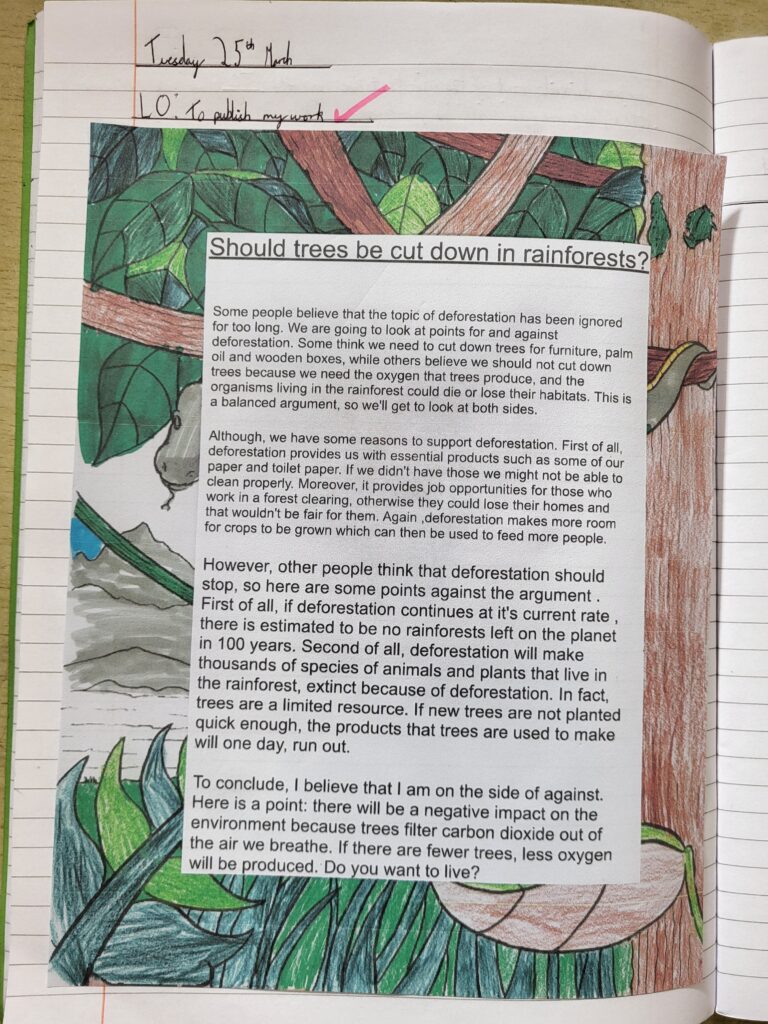 Tuesday 25th March
LO: To publish my work
Should trees be cut down in rainforests?
Some people believe that the topic of deforestation has been ignored
for too long. We are going to look at points for and against
deforestation. Some think we need to cut down trees for furniture, palm
oil and wooden boxes, while others believe we should not cut down
trees because we need the oxygen that trees produce, and the
organisms living in the rainforest could die or lose their habitats. This is
a balanced argument, so we'll get to look at both sides.
Although, we have some reasons to support deforestation. First of all,
deforestation provides us with essential products such as some of our
paper and toilet paper. If we didn't have those we might not be able to
clean properly. Moreover, it provides job opportunities for those who
work in a forest clearing, otherwise they could lose their homes and
that wouldn't be fair for them. Again ,deforestation makes more room
for crops to be grown which can then be used to feed more people.
However, other people think that deforestation should
stop, so here are some points against the argument .
First of all, if deforestation continues at it's current rate ,
there is estimated to be no rainforests left on the planet
in 100 years. Second of all, deforestation will make
thousands of species of animals and plants that live in
the rainforest, extinct because of deforestation. In fact,
trees are a limited resource. If new trees are not planted
quick enough, the products that trees are used to make
will one day, run out.
To conclude, I believe that I am on the side of against.
Here is a point: there will be a negative impact on the
environment because trees filter carbon dioxide out of
the air we breathe. If there are fewer trees, less oxygen
will be produced. Do you want to live?